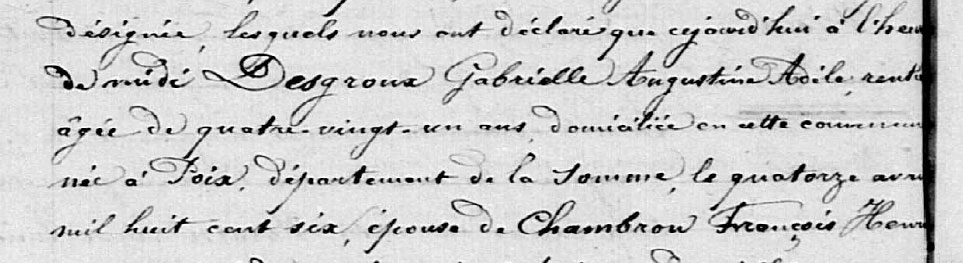 désignée, lesquels nous ont déclaré que cejourd'hui à l'heu
de midi Desgroux Gabrielle Augustine Adile, rent
âgée de quatre-vingt-un ans, domiciliée en cette commun
née à Poix, département de la Somme, le quatorze avr
mil huit cent six, épouse de Chambron François Henr